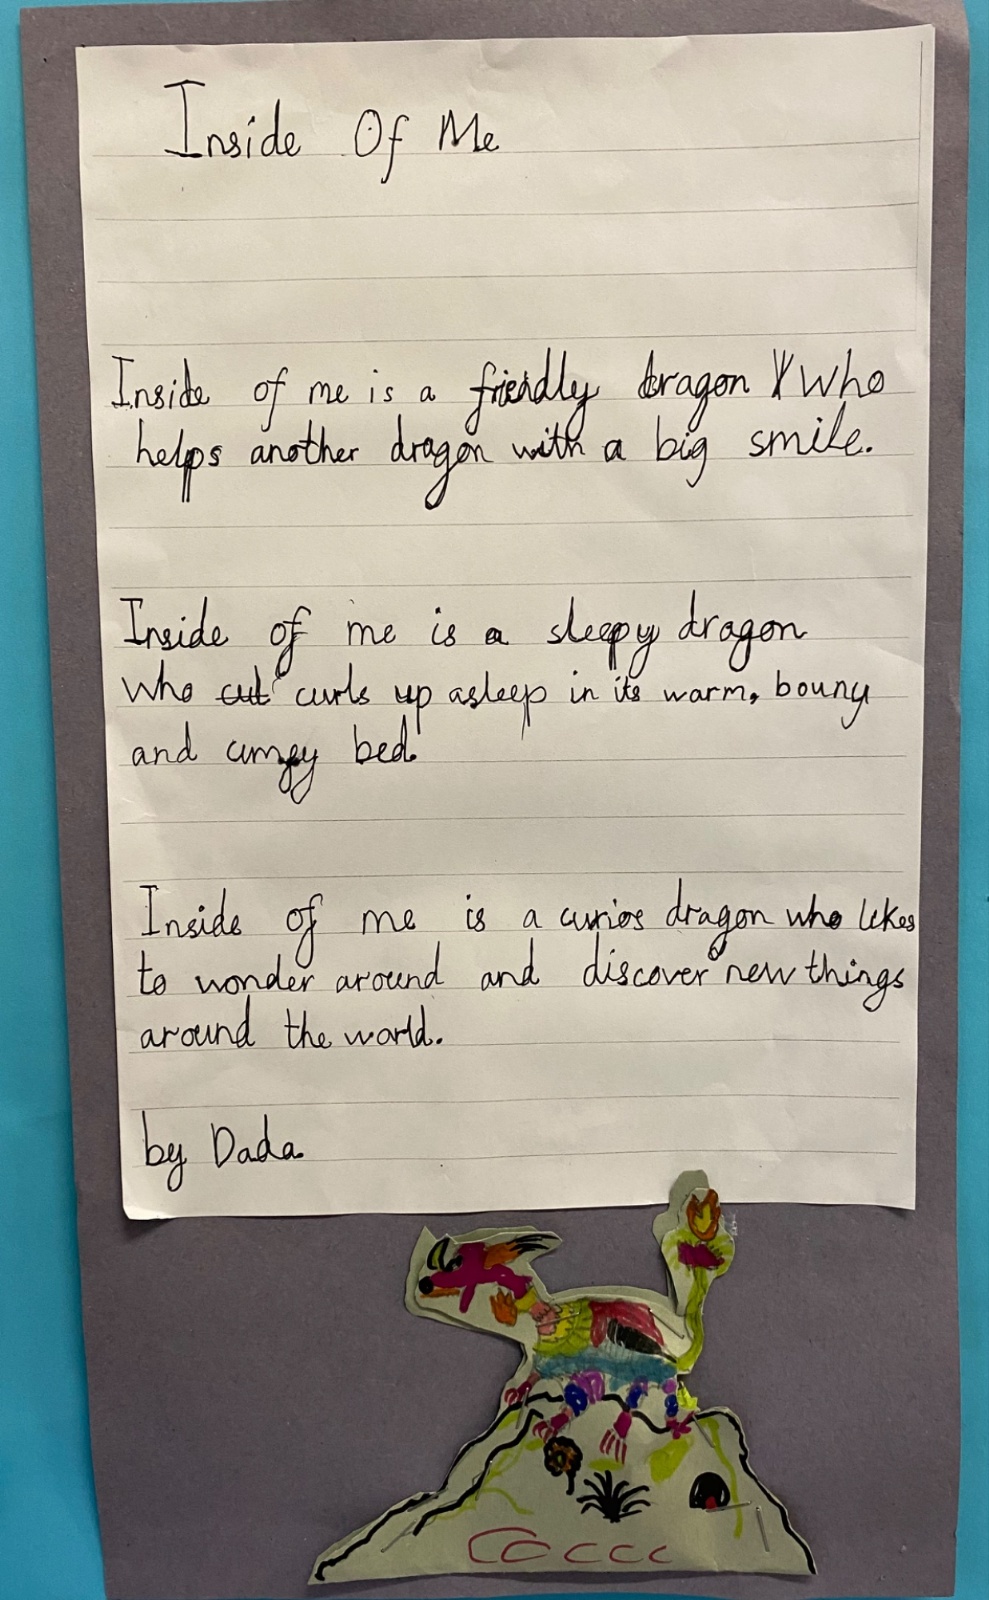 Inside Of Me
Inside of me is a friendly dragon who
helps another dragon with a big smile.
Inside of me is a sleepy dragon
who cut curls up asleep in its warm, bouny
and cumfy bed.
Inside of me is a curios dragon who likes
to wonder around and discover new things
around the world.
by Dada